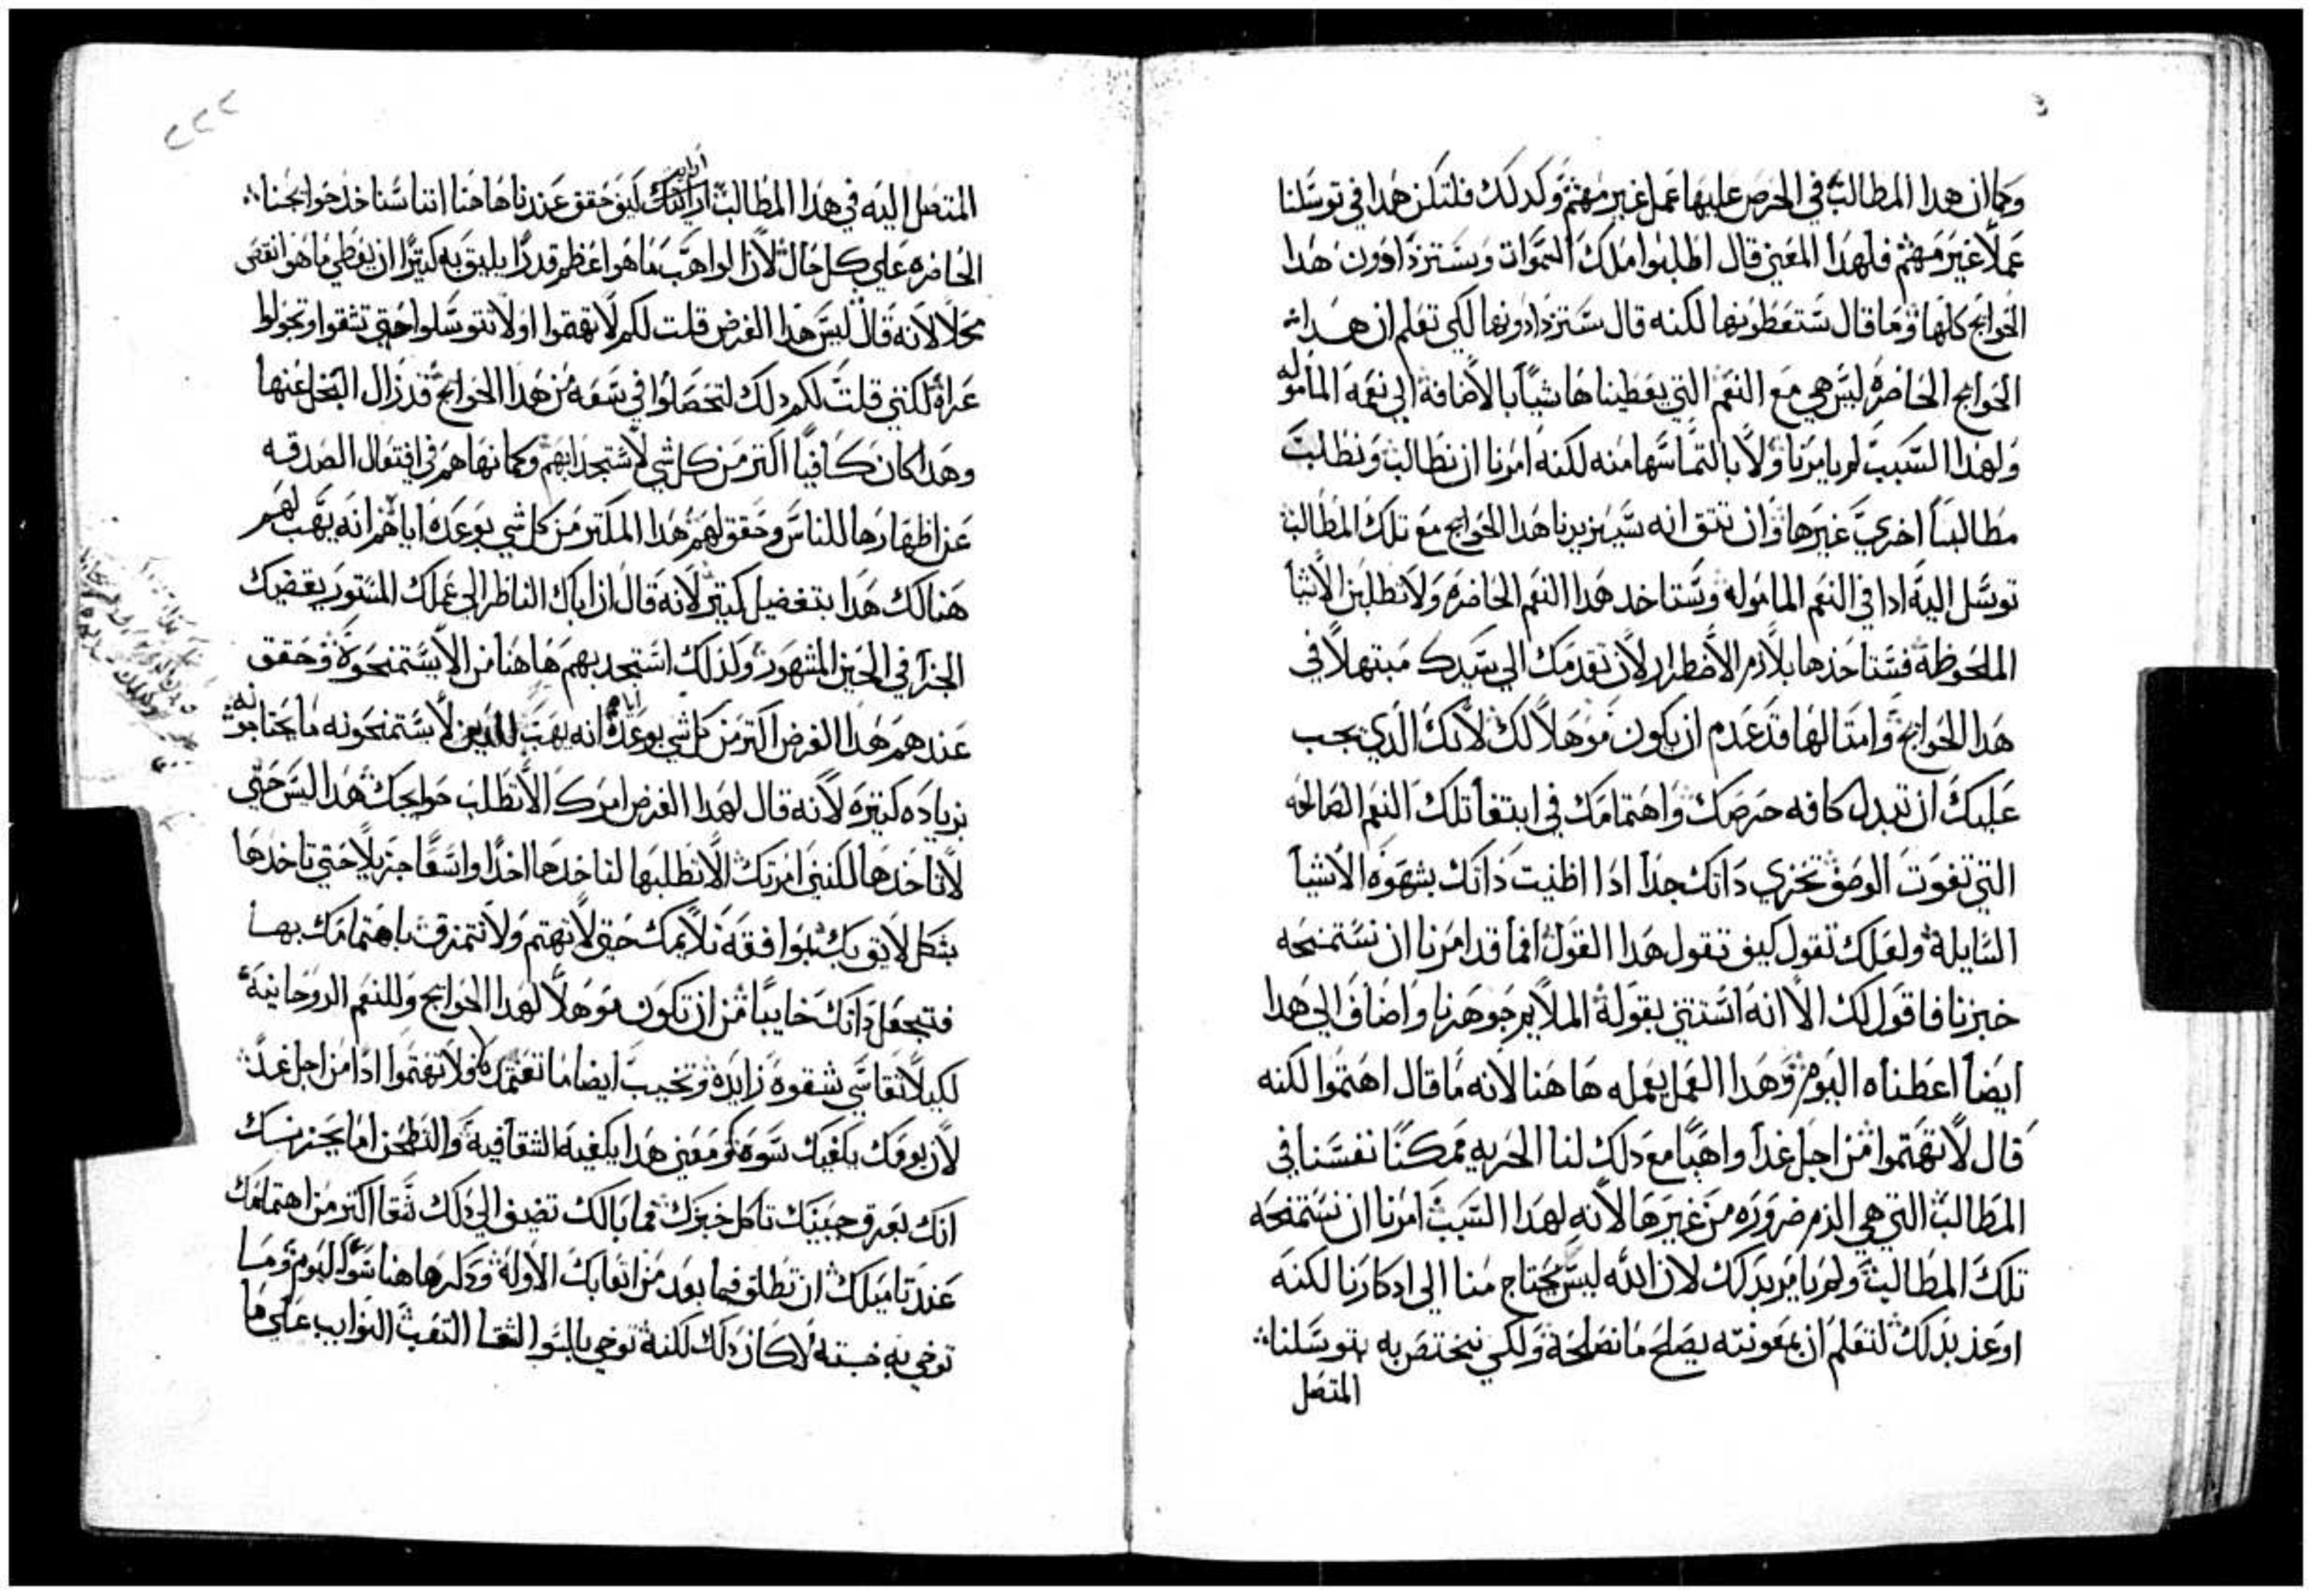 وكما ان هدا المطالب في الحرص عليها عمل غير مهثم وكدلك فلتكن هدا في توسلنا
عملا غير مهثم فلهدا المعني قال اطلبوا ملك السموات وستزدادون هدا
الحوايج كلها وما قال ستعطونها لكنه قال ستزدادونها لكي تعلم ان هدا
الحوايج الحاضره ليس هي مع النعم التي يعطيناها شياً بالاضافة الي نعمه الماموله
ولهدا السبب لم يامرنا ولا بالتماسها منه لكنه امرنا ان نطالب ونطلب
مطالباً اخري غيرها وان نتق انه سيزيدنا هدا الحوايج مع تلك المطالب
توسل اليه ادا في النعم الماموله وستاخد هدا النعم الحاضره ولا تطلبن الاشيا
الملحوظة فستاخدها بلازم الاضطرار لان تقدمك الي سيدك مبتهلاً في
هدا الحوايج وامتالها قد عدم ان يكون موهلاً لك لانك الدي يجب
عليك ان تبدل كافه حرصك واهتمامك في ابتغا تلك النعم الصالحه
التي تفوت الوصف تخزي داتك جداً ادا اظنيت داتك بشهوه الاشيا
السايلة ولعلك تقول كيف تقول هدا القول افما قد امرنا ان نستمنحه
خبزنا فاقول لك الا انه استتني بقولة الملايم جوهرنا واضاف الي هدا
ايضاً اعطناه اليوم وهدا العمل يعمله هاهنا لانه ما قال اهتموا لكنه
قال لا تهتموا من اجل غداً واهباً مع دلك لنا الحريه ممكناً نفسنا في
المطالب التي هي الزم ضروره من غيرها لانه لهدا السبب امرنا ان نستمنحه
تلك المطالب ولم يامر بدلك لان الله ليس يحتاج منا الي ادكارنا لكنه
اوعز بدلك لنعلم ان بمعونته يصلح ما نصلحة ولكي نختص به بتوسلنا
المتصل
المتصل اليه في هدا المطالب كيف حقق عندنا هاهنا اننا سناخد حوايجنا
الحاضره علي كل حال لان الواهب ما هو اعظم قدراً يليق به كتيراً ان يعطي ما هو انقص
محلا لانه قال ليس هدا الغرض قلت لكم لا تهتموا او لا تتوسلوا حتي تشقوا وتجولوا
عراة لكنني قلت لكم دلك لتحصلوا في سعة من هدا الحوايج قد زال البخل عنها
وهدا كان كافياً اكتر من كل شي لاستجدابهم وكما نهاهم في افتعال الصدقه
عن اظهارها للناس وحقق لهم هدا المكتر من كل شي بوعده اياهم انه يهب لهم
هنالك هدا بتفضيل كتير لانه قال ان اباك الناظر الي عملك المستور يقضيك
الجزا في الحين المشهور ولدلك استجد بهم هاهنا من الا يستمنحوه وحقق
عندهم هدا الغرض اكتر من كل شي بوعده اياه انه يهب للدين لا يستمنحونه ما يحتاجونه
بزياده كتيره لانه قال لهدا الغرض امرك الا تطلب حوايجك هدا ليس حتي
لا تاخدها لكنني امرتك الا تطلبها لتاخدها اخداً واسعاً جزيلاً حتي تاخدها
بشكل لايق بك بموافقة تلايمك حتي لا تهتم ولا تتمزق باهتمامك بها
فتجعل داتك خايباً من ان تكون موهلاً لهدا الحوايج وللنعم الروحانية
لكيلا تقاسي شقوه زايدة وتخيب ايضاً ما تغتمك فلا تهتموا اداً من اجل غد
لان يومك يكفيك سوه ومعني هدا يكفيه الشقا فيه
انك بعرق جبينك تاكل خبزك فما بالك تضيف الي دلك شقا اكتر من اهتمامك
عند تاميلك ان تطلق فيما بعد من اتعابك الاولة ودكرها هنا سو اليوم وما
توخي به خبتة لا كان دلك لكنة توخي بالسو الشقا التعب النوايب علي ما